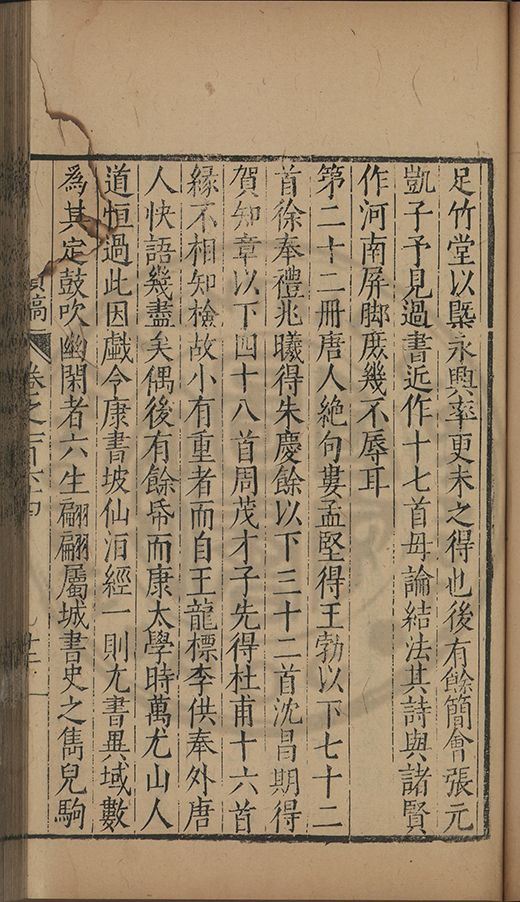 足竹堂以槩永興率更未之得也後有餘簡會張元
凱子予見過書近作十七首毋論結法其詩與諸賢
作河南屏脚庶幾不辱耳
第二十二冊唐人絶句婁孟堅得王勃以下七十二
首徐奉禮兆曦得朱慶餘以下三十二首沈昌期得
賀知章以下四十八首周茂才子先得杜甫十六首
緣不相知檢故小有重者而自王龍標李供奉外唐
人快語幾盡矣偶後有餘帋而康太學時萬尤山人
道恒過此因戲令康書坡仙酒經一則尤書異域數
為其定鼓吹幽閑者六生翩翩屬城書史之雋兒駒
稿
卷之一百六十四